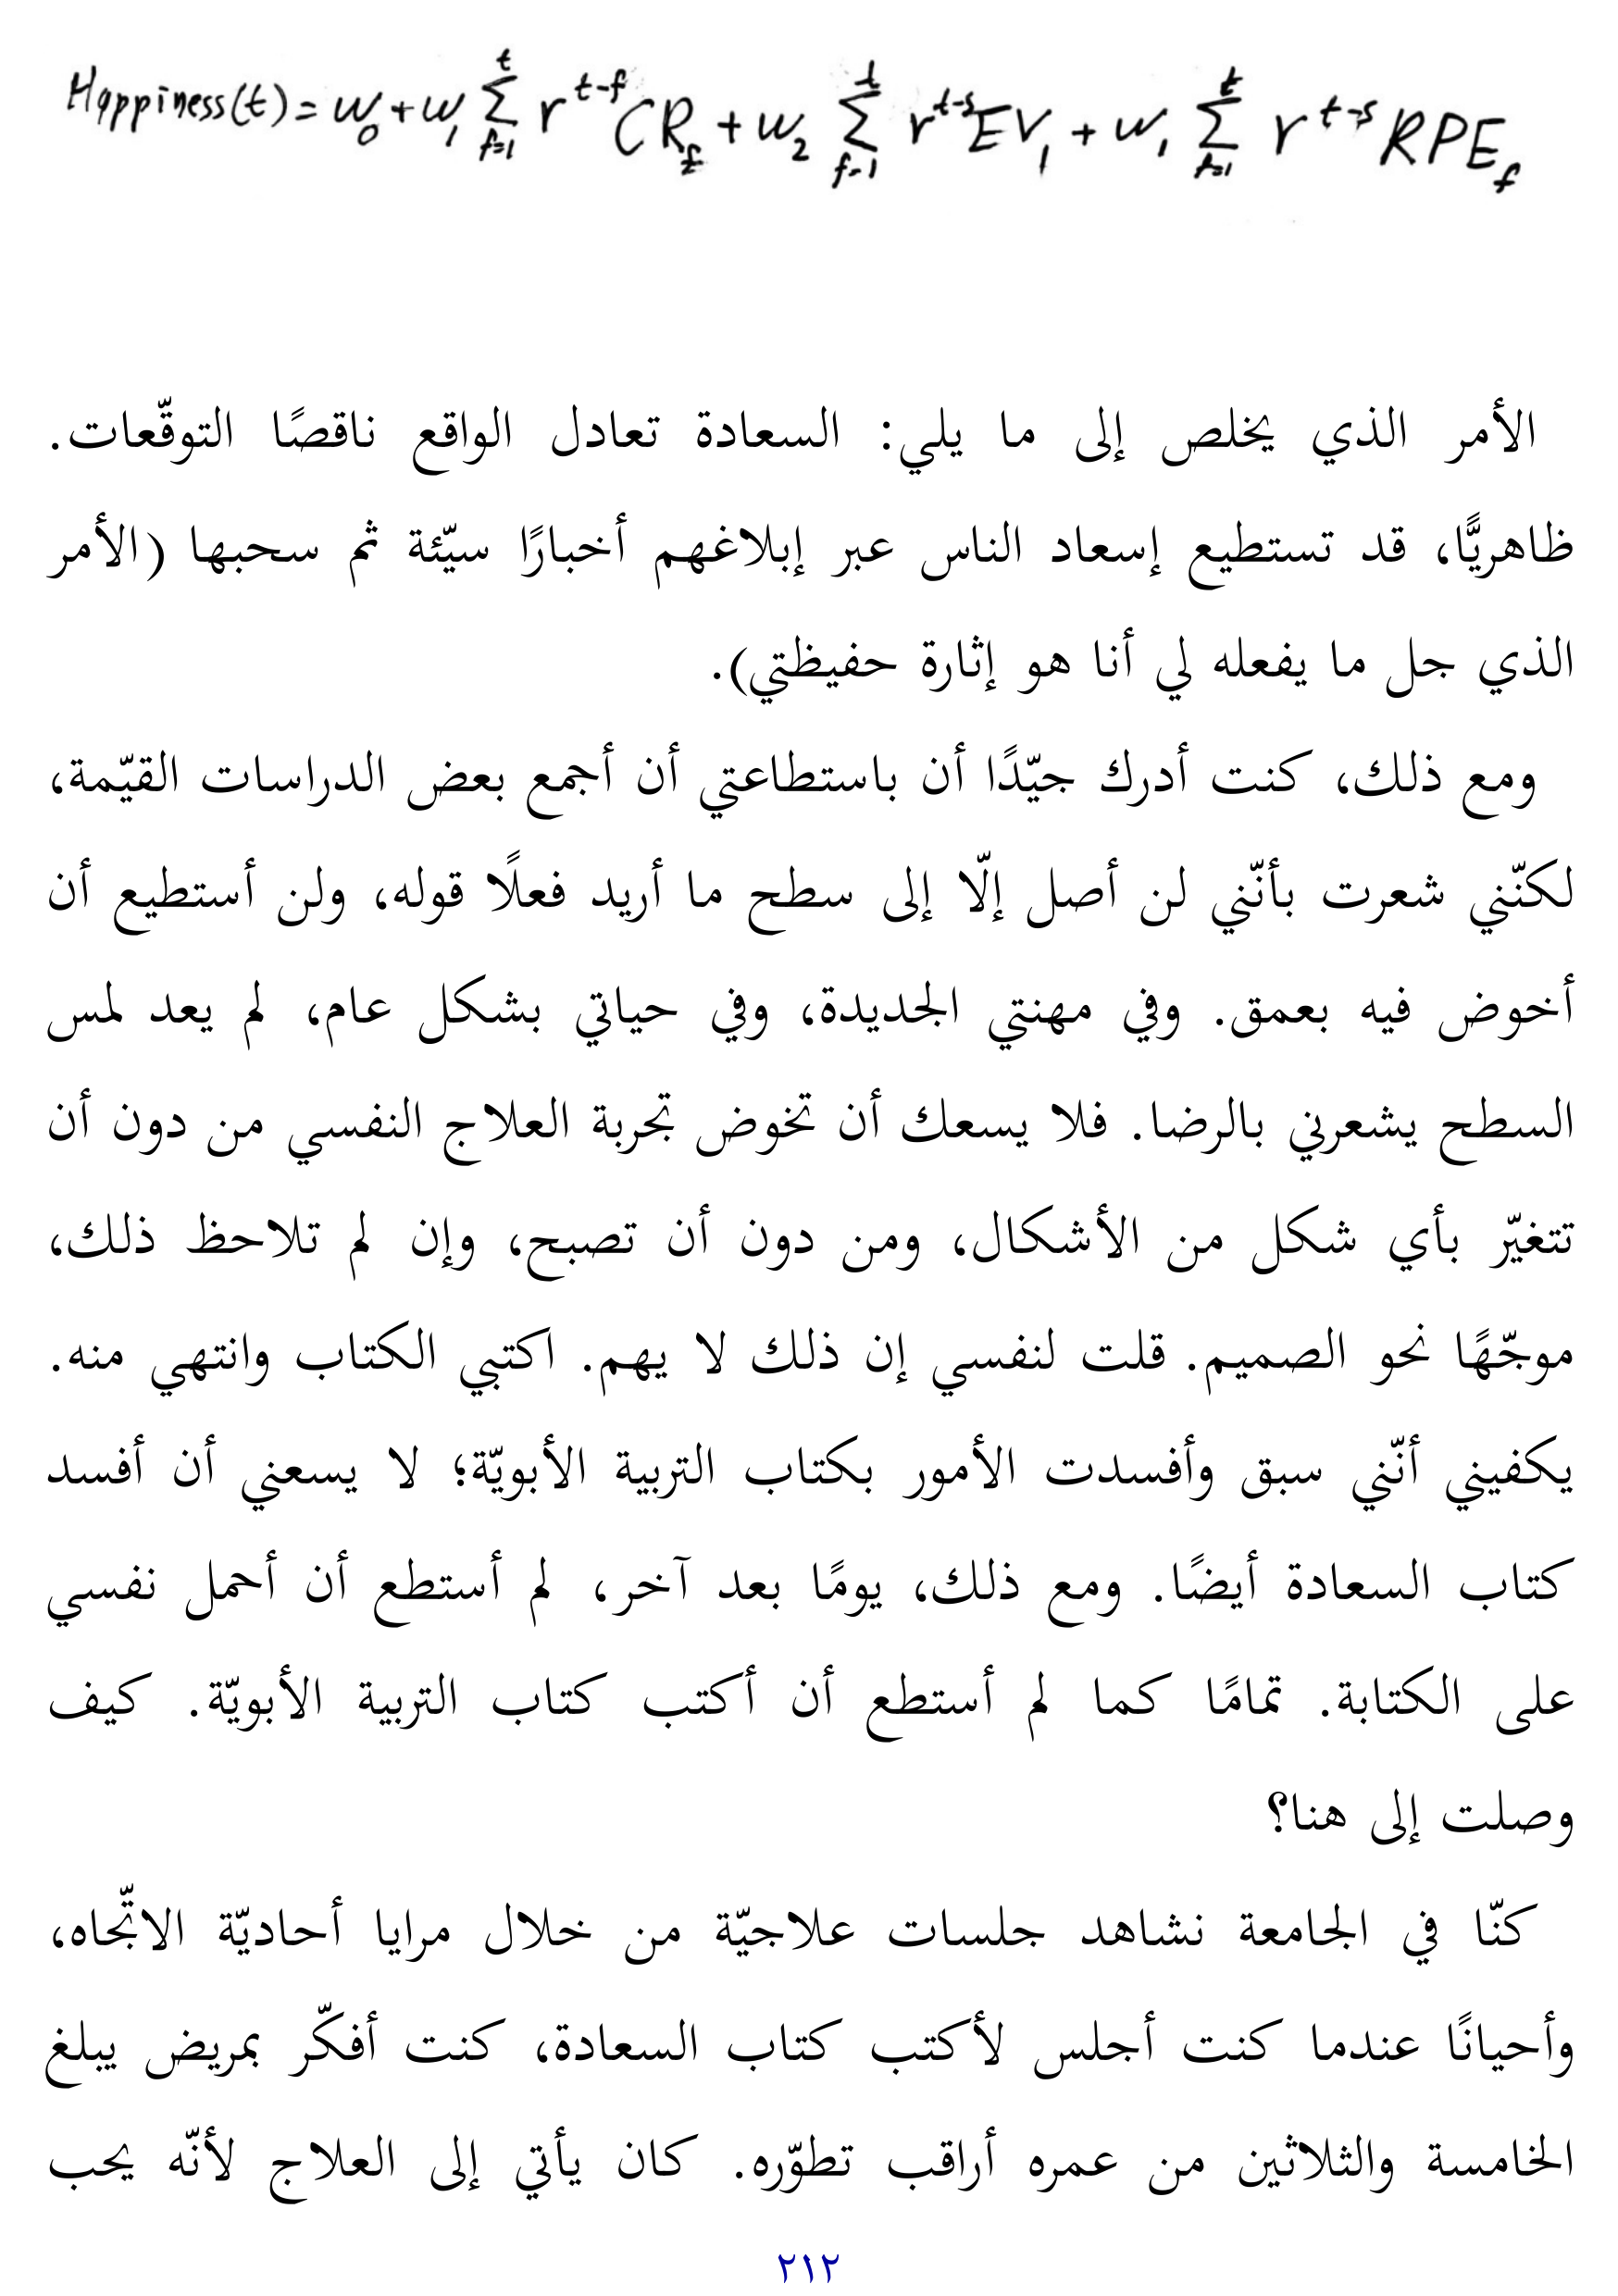 Happiness(t) = w₀ + w₁ Σ_{f=1}^{t} r^{t-f} CR_f + w₂ Σ_{f=1}^{t} r^{t-s} EV₁ + w₁ Σ_{f=1}^{t} r^{t-s} RPE_f
الأمر الذي يخلص إلى ما يلي: السعادة تعادل الواقع ناقصًا التوقّعات.
ظاهريًّا، قد تستطيع إسعاد الناس عبر إبلاغهم أخبارًا سيّئة ثم سحبها (الأمر
الذي جل ما يفعله لي أنا هو إثارة حفيظتي).
ومع ذلك، كنت أدرك جيّدًا أن باستطاعتي أن أجمع بعض الدراسات القيّمة،
لكنّني شعرت بأنّني لن أصل إلّا إلى سطح ما أريد فعلًا قوله، ولن أستطيع أن
أخوض فيه بعمق. وفي مهنتي الجديدة، وفي حياتي بشكل عام، لم يعد لمس
السطح يشعرني بالرضا. فلا يسعك أن تخوض تجربة العلاج النفسي من دون أن
تتغيّر بأي شكل من الأشكال، ومن دون أن تصبح، وإن لم تلاحظ ذلك،
موجّهًا نحو الصميم. قلت لنفسي إن ذلك لا يهم. اكتبي الكتاب وانتهي منه.
يكفيني أنّني سبق وأفسدت الأمور بكتاب التربية الأبويّة؛ لا يسعني أن أفسد
كتاب السعادة أيضًا. ومع ذلك، يومًا بعد آخر، لم أستطع أن أحمل نفسي
على الكتابة. تمامًا كما لم أستطع أن أكتب كتاب التربية الأبويّة. كيف
وصلت إلى هنا؟
كنّا في الجامعة نشاهد جلسات علاجيّة من خلال مرايا أحاديّة الاتّجاه،
وأحيانًا عندما كنت أجلس لأكتب كتاب السعادة، كنت أفكّر بمريض يبلغ
الخامسة والثلاثين من عمره أراقب تطوّره. كان يأتي إلى العلاج لأنّه يحب
٢١٢